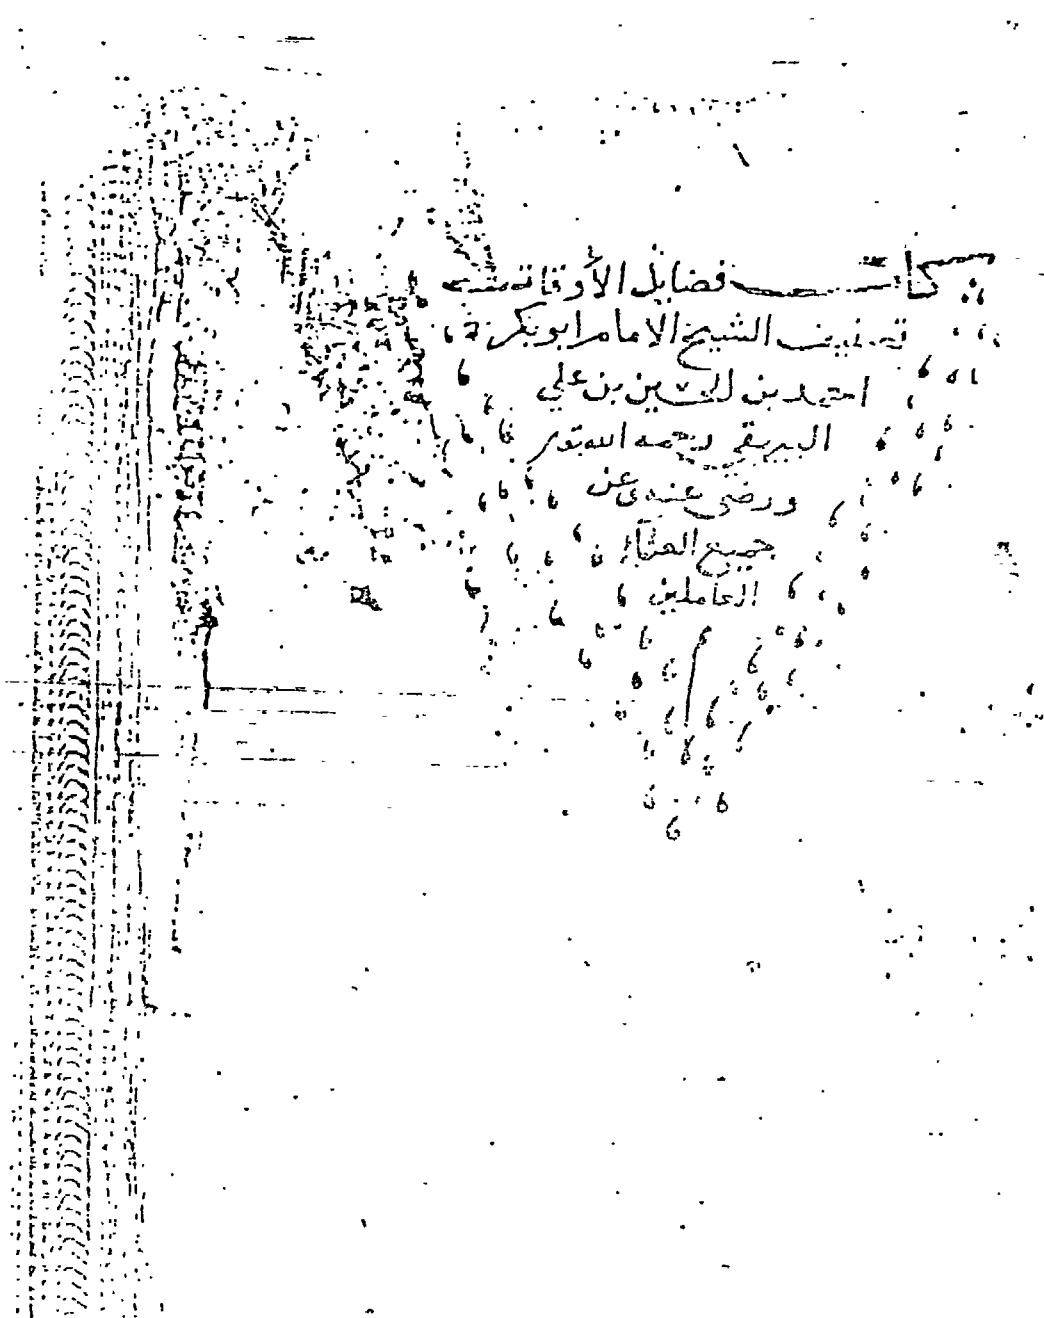 كتاب فضايل الأوقات
تصنيف الشيخ الامام ابو بكر
احمد بن الحسين بن علي
البيهقي رحمه الله
ورضي عنه وعن
جميع العلماء
العاملين